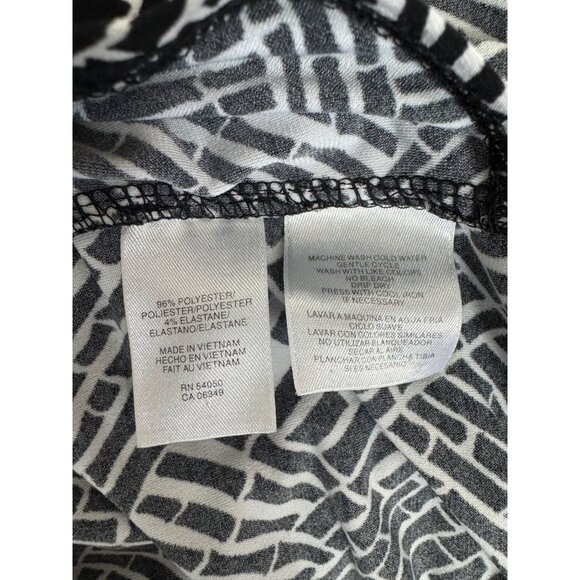 96% POLYESTER/
POLIESTER/POLYESTER
4% ELASTANE/
ELASTANO/ELASTANE
MADE IN VIETNAM
HECHO EN VIETNAM
FAIT AU VIETNAM
RN 54050
CA 06349
MACHINE WASH COLD WATER
GENTLE CYCLE
WASH WITH LIKE COLORS
NO BLEACH
DRIP DRY
PRESS WITH COOL IRON,
IF NECESSARY
LAVAR A MAQUINA EN AGUA FRIA
CICLO SUAVE
LAVAR CON COLORES SIMILARES
NO UTILIZAR BLANQUEADOR
SECAR AL AIRE
PLANCHAR CON PLANCHA TIBIA
SI ES NECESARIO